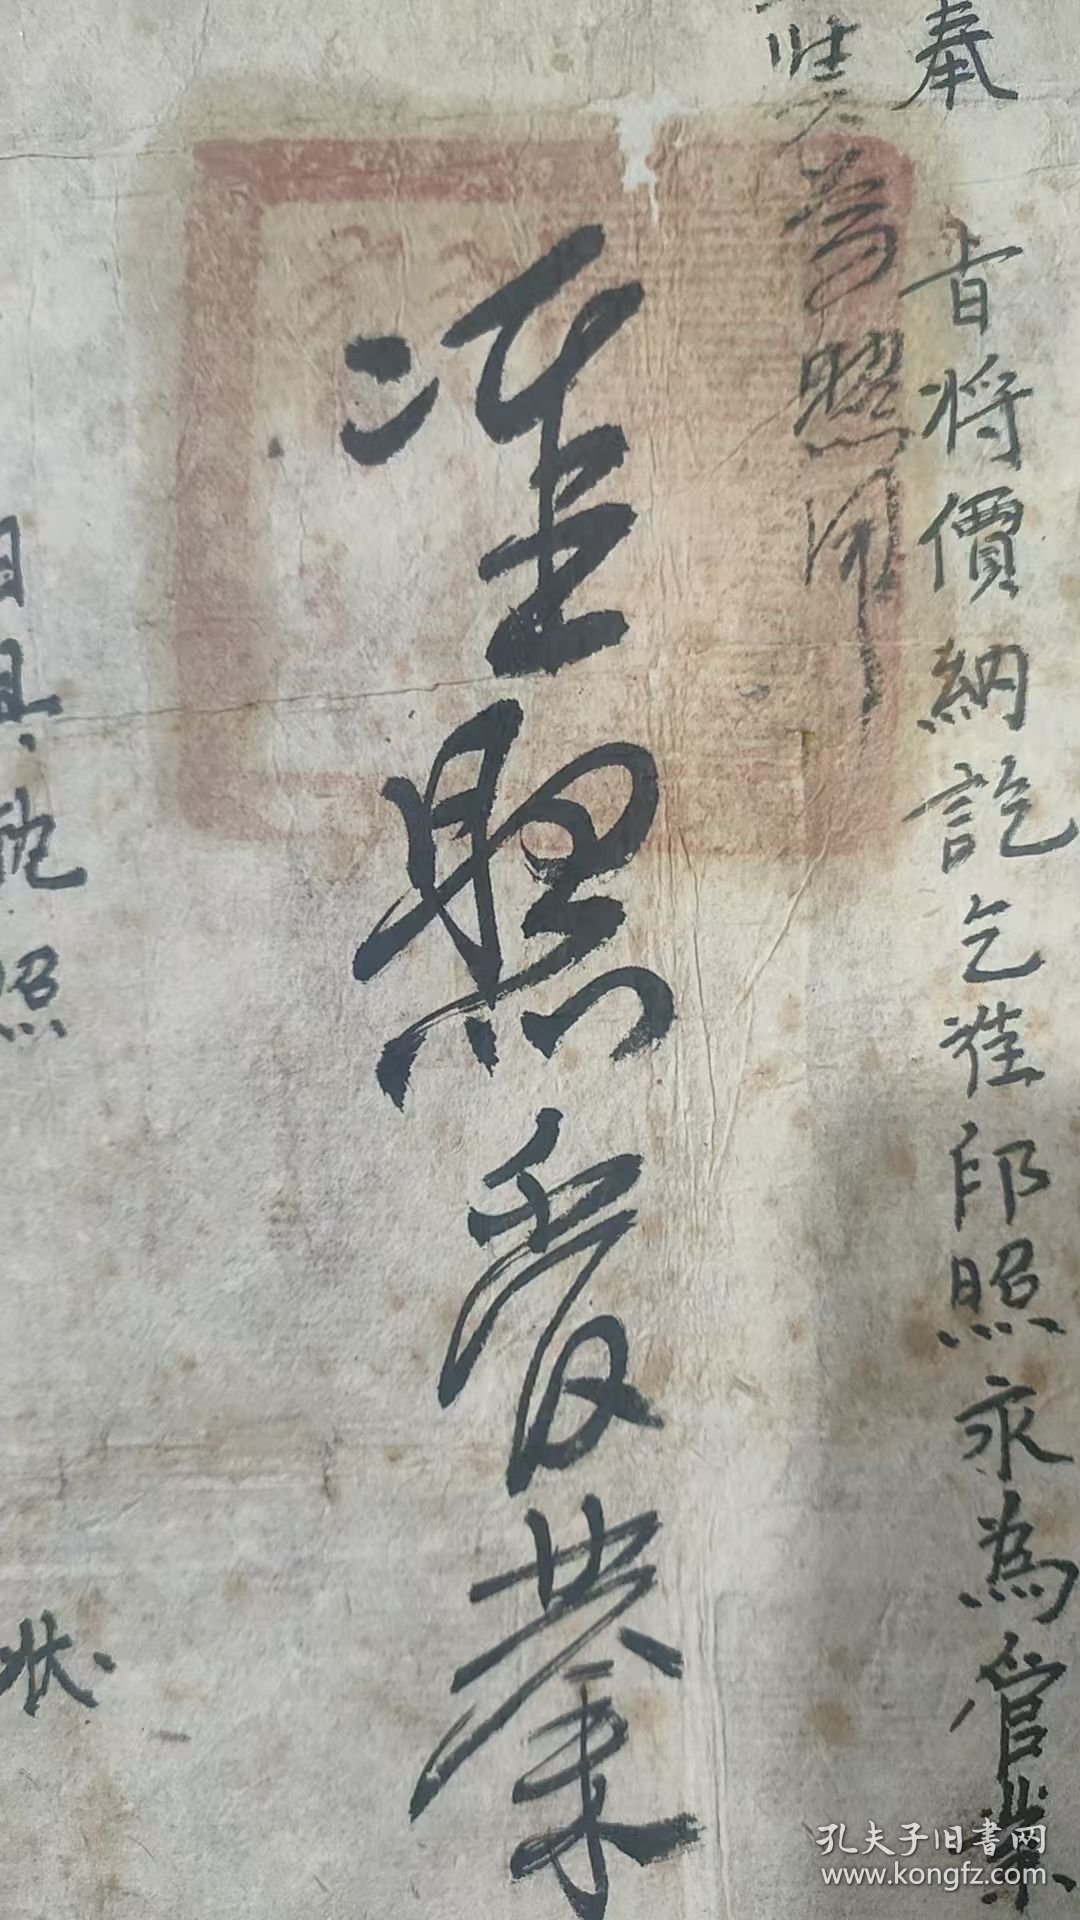 奉
旨將價納訖乞准印照永為管業
為照用
准照爰業
具
照
狀
孔夫子旧書网
www.kongfz.com